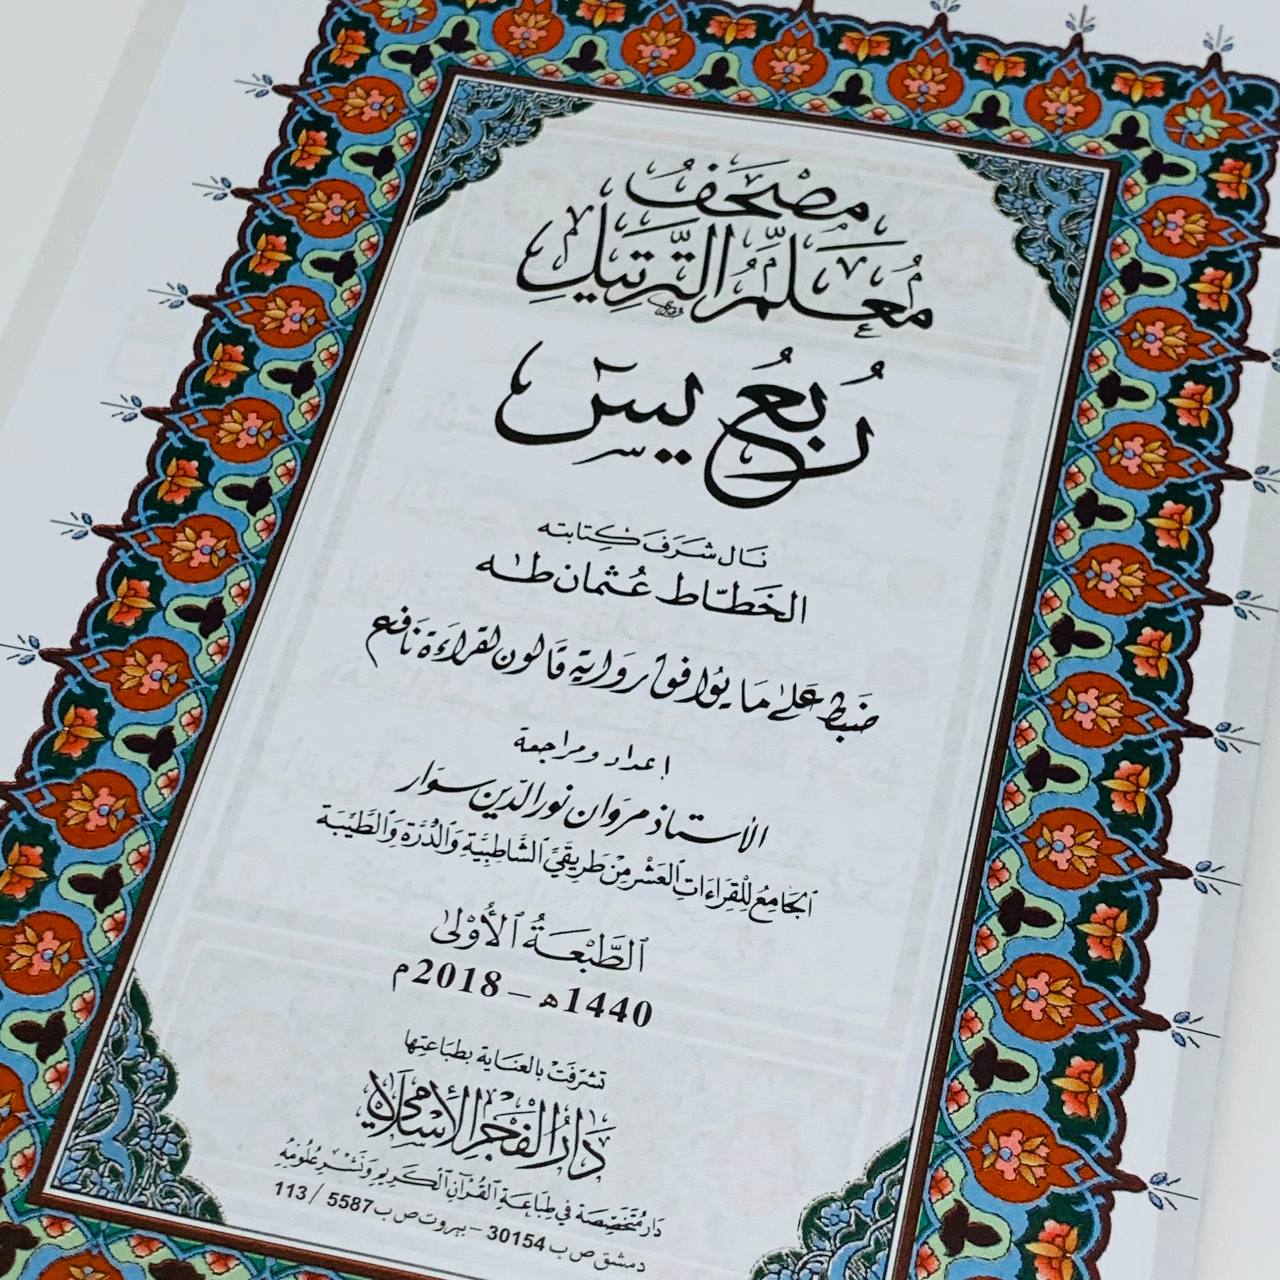 مصْحَفُ
مُعَلِّمُ التَّرتيلِ
رُبُعُ يسٓ
نَال شَرَفَ كِتابته
الخَطّاط عُثمان طٰه
ضبط عَلىٰ مَا يُوافق رِوَاية قَالون لقراءَة نَافع
إعداد ومراجعة
الأستاذ مروَان نورالدّين سوَار
اَلجَامِعُ لِلْقِرَاءَاتِ اَلْعَشْرِ مِنْ طَرِيقَيْ اَلشَّاطِبِيَّةِ وَاَلدُّرَّةِ وَاَلطَّيِّبَة
اَلطَّبْعَةُ اَلأُوْلىٰ
1440هـ – 2018م
تشرّفَتْ بالعناية بطبَاعتِها
دَارُ الفَجْرِ الإِسْلَامِي
دَار مُتَخَصِّصَة في طِبَاعَةِ اَلْقُرْآنِ اَلكَرِيمِ وَنَشْرِ عُلُومِهِ
دمشق ص ب 30154 – بيروت ص ب 5587 / 113